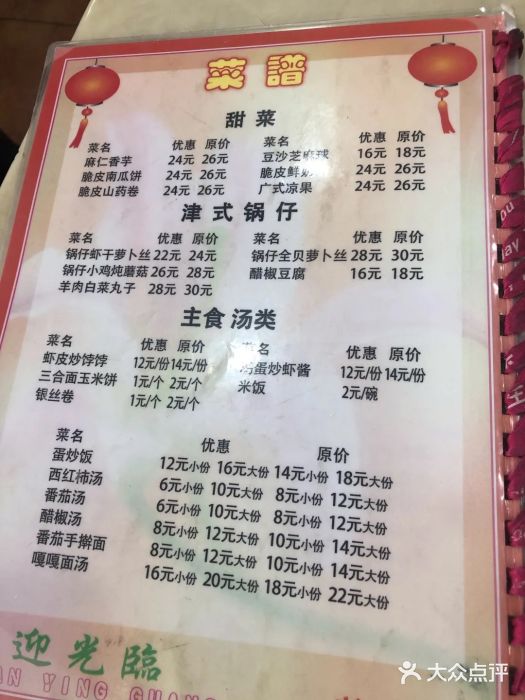 菜譜
甜菜
菜名 优惠 原价 菜名 优惠 原价
麻仁香芋 24元 26元 豆沙芝麻球 16元 18元
脆皮南瓜饼 24元 26元 脆皮鲜奶 24元 26元
脆皮山药卷 24元 26元 广式凉果 24元 26元
津式锅仔
菜名 优惠 原价 菜名 优惠 原价
锅仔虾干萝卜丝 22元 24元 锅仔全贝萝卜丝 28元 30元
锅仔小鸡炖蘑菇 26元 28元 醋椒豆腐 16元 18元
羊肉白菜丸子 28元 30元
主食 汤类
菜名 优惠 原价 菜名 优惠 原价
虾皮炒饽饽 12元/份 14元/份 鸡蛋炒虾酱 12元/份 14元/份
三合面玉米饼 1元/个 2元/个 米饭 2元/碗
银丝卷 1元/个 2元/个
菜名 优惠 原价
蛋炒饭 12元小份 16元大份 14元小份 18元大份
西红柿汤 6元小份 10元大份 8元小份 12元大份
番茄汤 6元小份 10元大份 8元小份 12元大份
醋椒汤 8元小份 12元大份 10元小份 14元大份
番茄手擀面 8元小份 12元大份 10元小份 14元大份
嘎嘎面汤 16元小份 20元大份 18元小份 22元大份
迎光臨
YING GUANG
大众点评